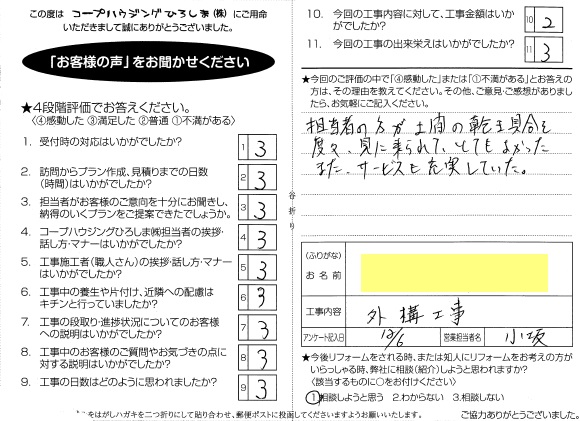 この度は コープハウジングひろしま(株) にご用命
いただきまして誠にありがとうございました。
「お客様の声」をお聞かせください
★4段階評価でお答えください。
〈④感動した ③満足した ②普通 ①不満がある〉
1. 受付時の対応はいかがでしたか? 1 3
2. 訪問からプラン作成、見積りまでの日数
(時間)はいかがでしたか? 2 3
3. 担当者がお客様のご意向を十分にお聞きし、
納得のいくプランをご提案できたでしょうか。 3 3
4. コープハウジングひろしま㈱担当者の挨拶・
話し方・マナーはいかがでしたか? 4 3
5. 工事施工者(職人さん)の挨拶・話し方・マナー
はいかがでしたか? 5 3
6. 工事中の養生や片付け、近隣への配慮は
キチンと行っていましたか? 6 3
7. 工事の段取り・進捗状況についてのお客様
への説明はいかがでしたか? 7 3
8. 工事中のお客様のご質問やお気づきの点に
対する説明はいかがでしたか? 8 3
9. 工事の日数はどのように思われましたか? 9 3
をはがしハガキを二つ折りにして貼り合わせ、郵便ポストに投函してくださいますようお願いいたします。
谷折り
10. 今回の工事内容に対して、工事金額はいか
がでしたか? 10 2
11. 今回の工事の出来栄えはいかがでしたか? 11 3
★今回のご評価の中で「④感動した」または「①不満がある」とお答えの
方は、その理由を教えてください。その他、ご意見・ご感想がありました
ら、お気軽にご記入ください。
担当者の方が土間の乾き具合を
度々、見に来られて、とてもよかった
また、サービスも充実していた。
(ふりがな)
お名前
工事内容 外構工事
アンケート記入日 12/6 営業担当者名 小坂
★今後リフォームをされる時、または知人にリフォームをお考えの方が
いらっしゃる時、弊社に相談(紹介)しようと思われますか?
〈該当するものに○をお付けください〉
1.相談しようと思う 2.わからない 3.相談しない
ご協力ありがとうございました。